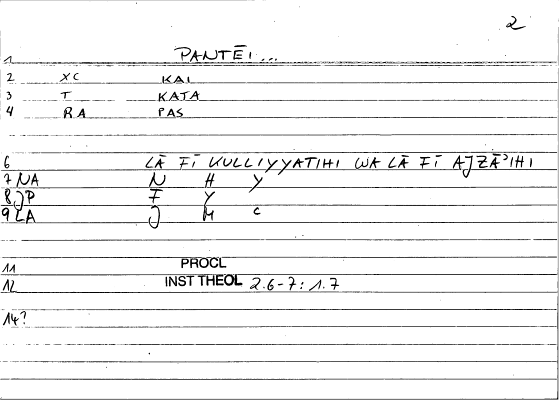 2
1 PANTĒI ...
2 XC KAI
3 T KATA
4 RA PAS
6 LĀ FĪ KULLIYYATIHI WA LĀ FĪ AJZĀʾIHI
7 NA N H Y
8 JP F Y
9 LA J M C
11 PROCL
12 INST THEOL 2.6-7: 1.7
14?